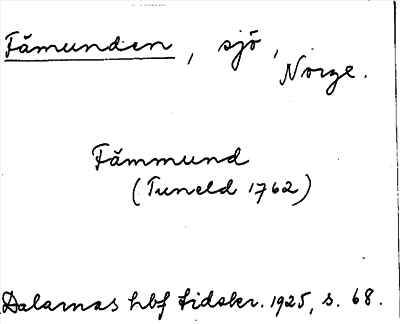 Fämunden, sjö,
Norge.
Fämmund
(Tuneld 1762)
Dalarnas hbf tidskr. 1925, s. 68.